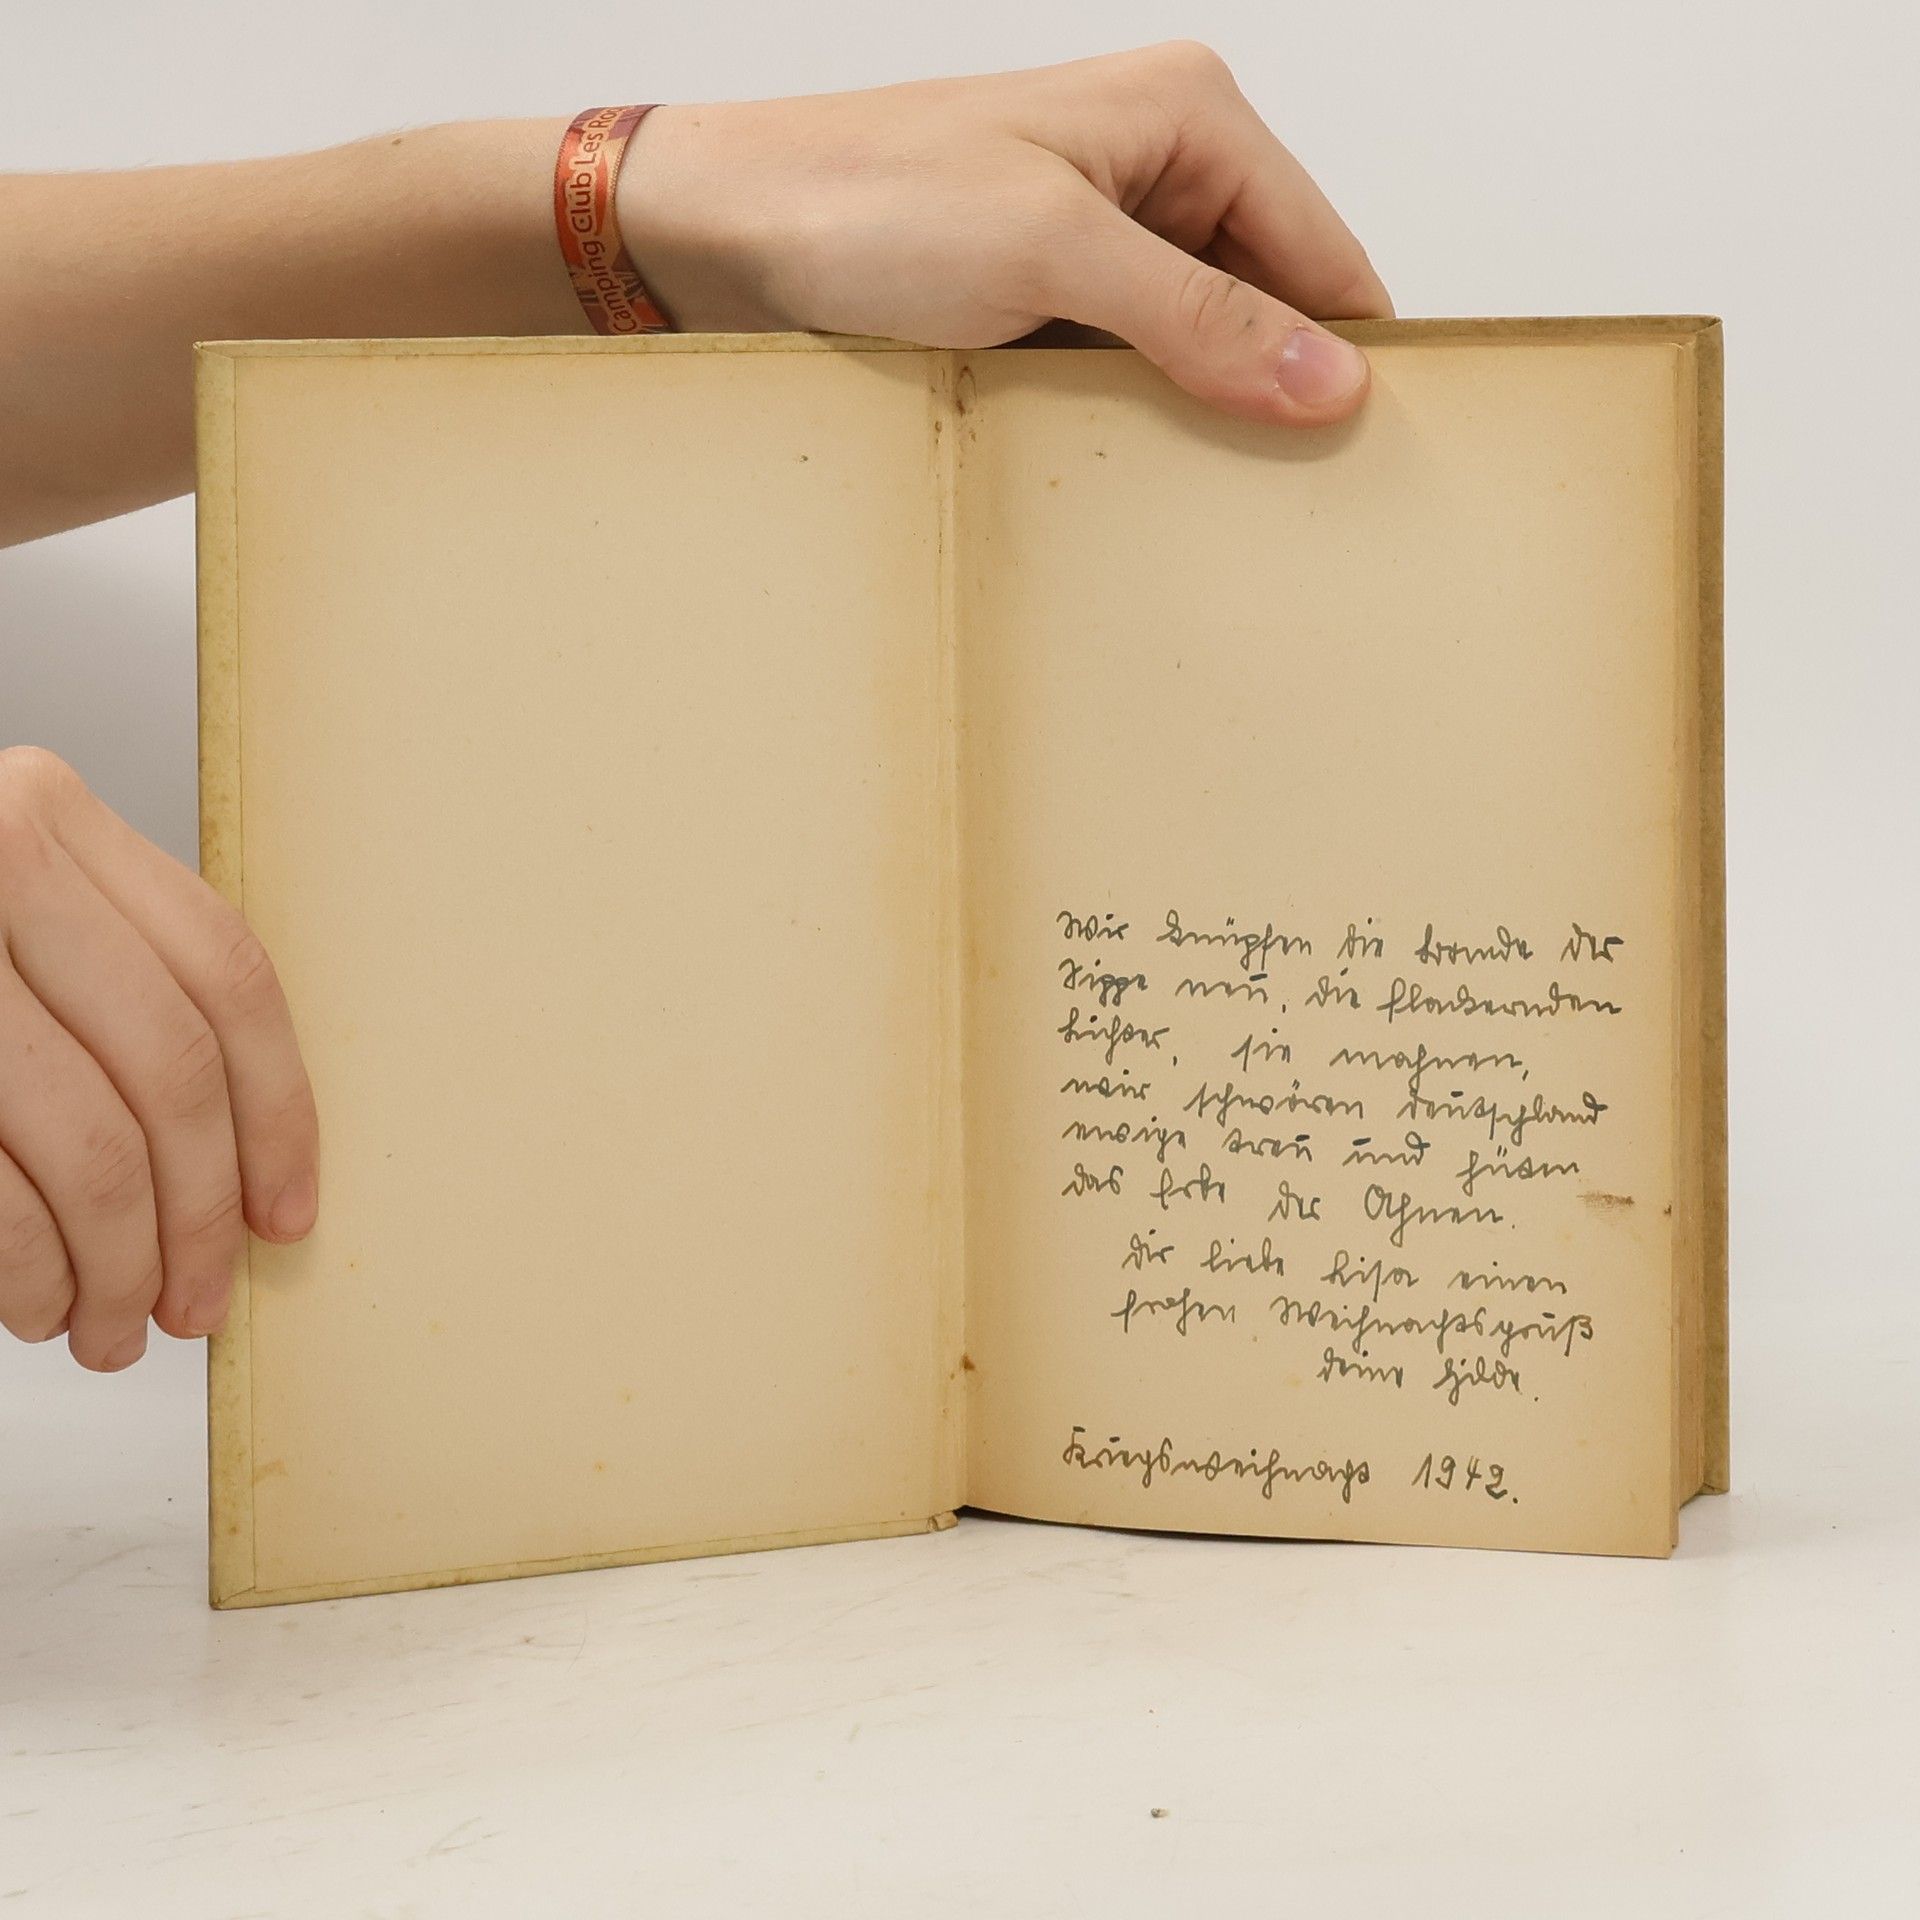 Camping Club Les Ro
Wir knüpfen die Bande der
Sippe neu, die flackernden
Lichter, sie mahnen,
wir schwören Deutschland
ewige Treu und hüten
das Erbe der Ahnen.
Dir liebe Lisa einen
frohen Weihnachtsgruß
Deine Hilde.
Kriegsweihnacht 1942.